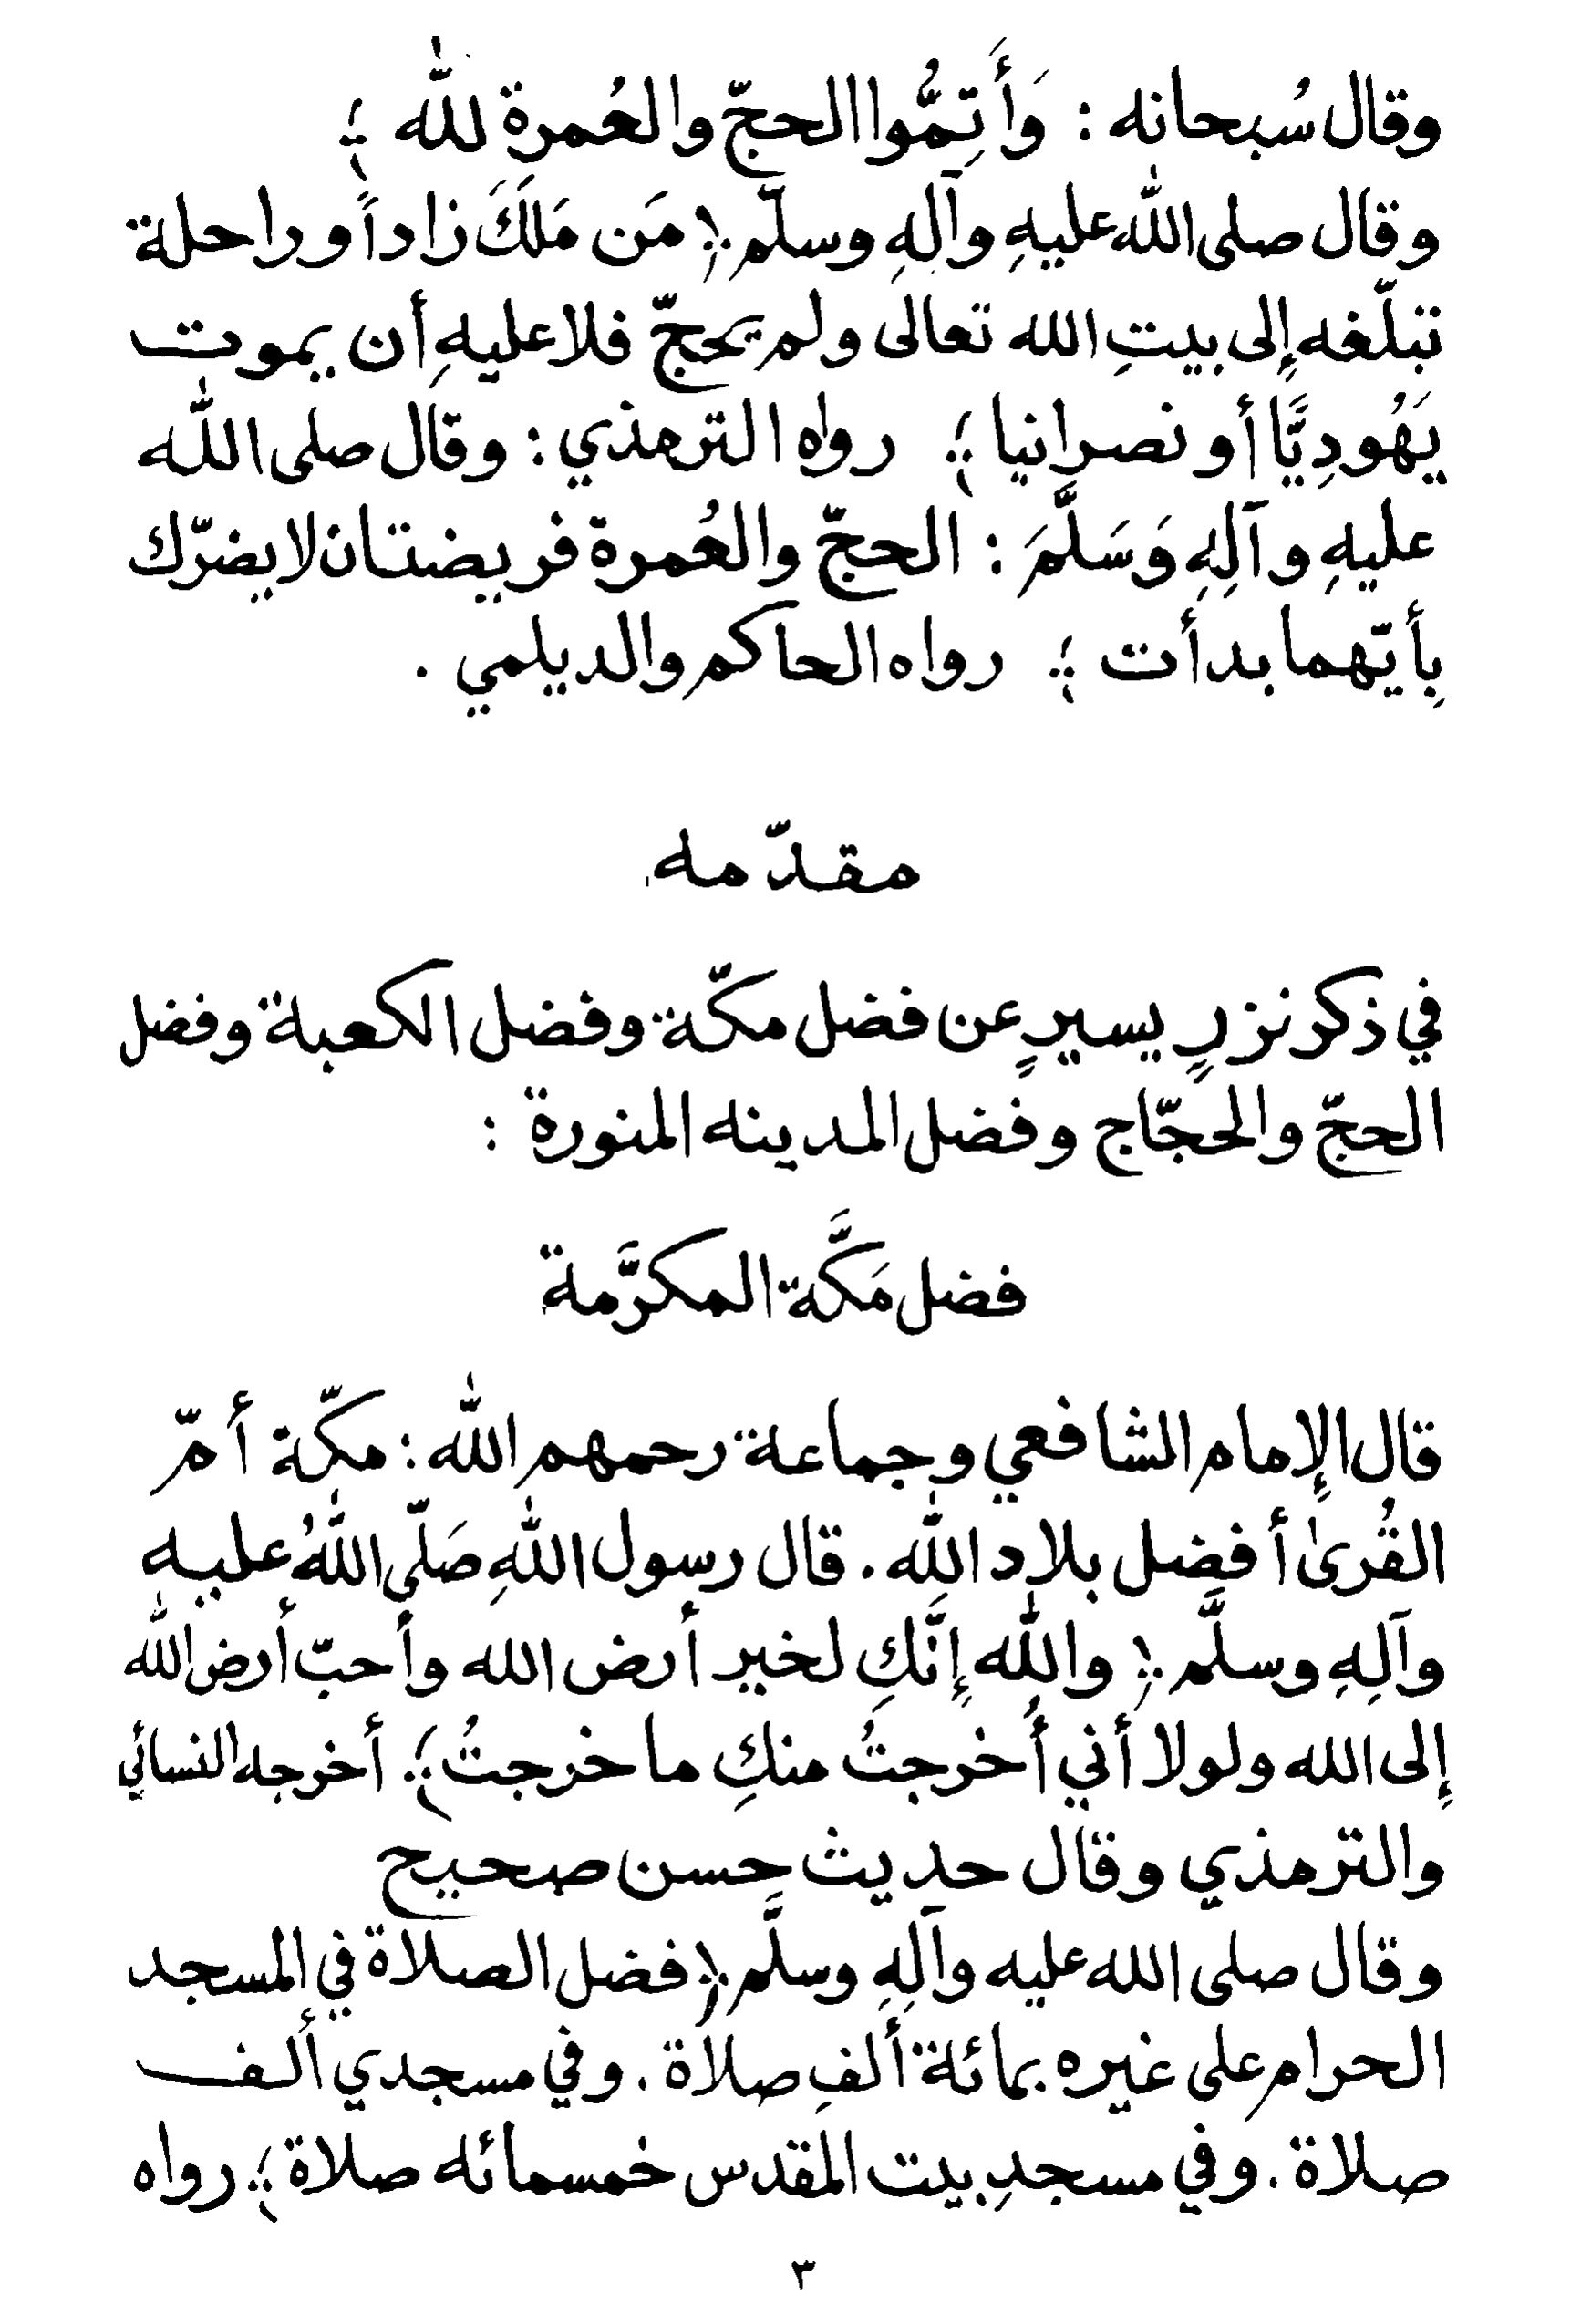 وقال سُبحانه : وَأَتِمُّوا الحجّ والعُمرة لله ﴾
وقال صلى الله عليهِ وآلِهِ وسلّم ﴿ مَن مَلَكَ زاداً وراحلة
تبلّغه إلى بيتِ الله تعالى ولم يحجّ فلا عليهِ أن يموت
يَهُودِيًّا أو نصرانيا ﴾ رواه الترمذي : وقال صلى الله
عليهِ وآلِهِ وَسَلَّمَ : الحجّ والعُمرة فريضتان لا يضرّك
بِأيّهما بدأت ﴾ رواه الحاكم والديلمي .
مقدّمه
في ذكر نزرٍ يسيرٍ عن فضل مكّة وفضل الكعبة وفضل
الحجّ والحجّاج وفضل المدينه المنورة :
فضل مَكَّة المكرَّمة
قال الإمام الشافعي وجماعة رحمهم الله : مكّة أمّ
القُرىٰ أفضل بلاد الله . قال رسول اللهِ صَلّى اللهُ عليه
وآلِهِ وسلَّم ﴿ والله إِنَّكِ لخير أرض الله وأحبّ أرض الله
إلى الله ولولا أني أُخرجتُ منكِ ما خرجتُ ﴾ أخرجه النسائي
والترمذي وقال حديث حسن صحيح
وقال صلى الله عليه وآلِهِ وسلَّم ﴿ فضل الصلاة في المسجد
الحرام على غيره بمائة ألفِ صلاة . وفي مسجدي ألف
صلاة . وفي مسجدِ بيت المقدس خمسمائه صلاة ﴾ رواه
٣